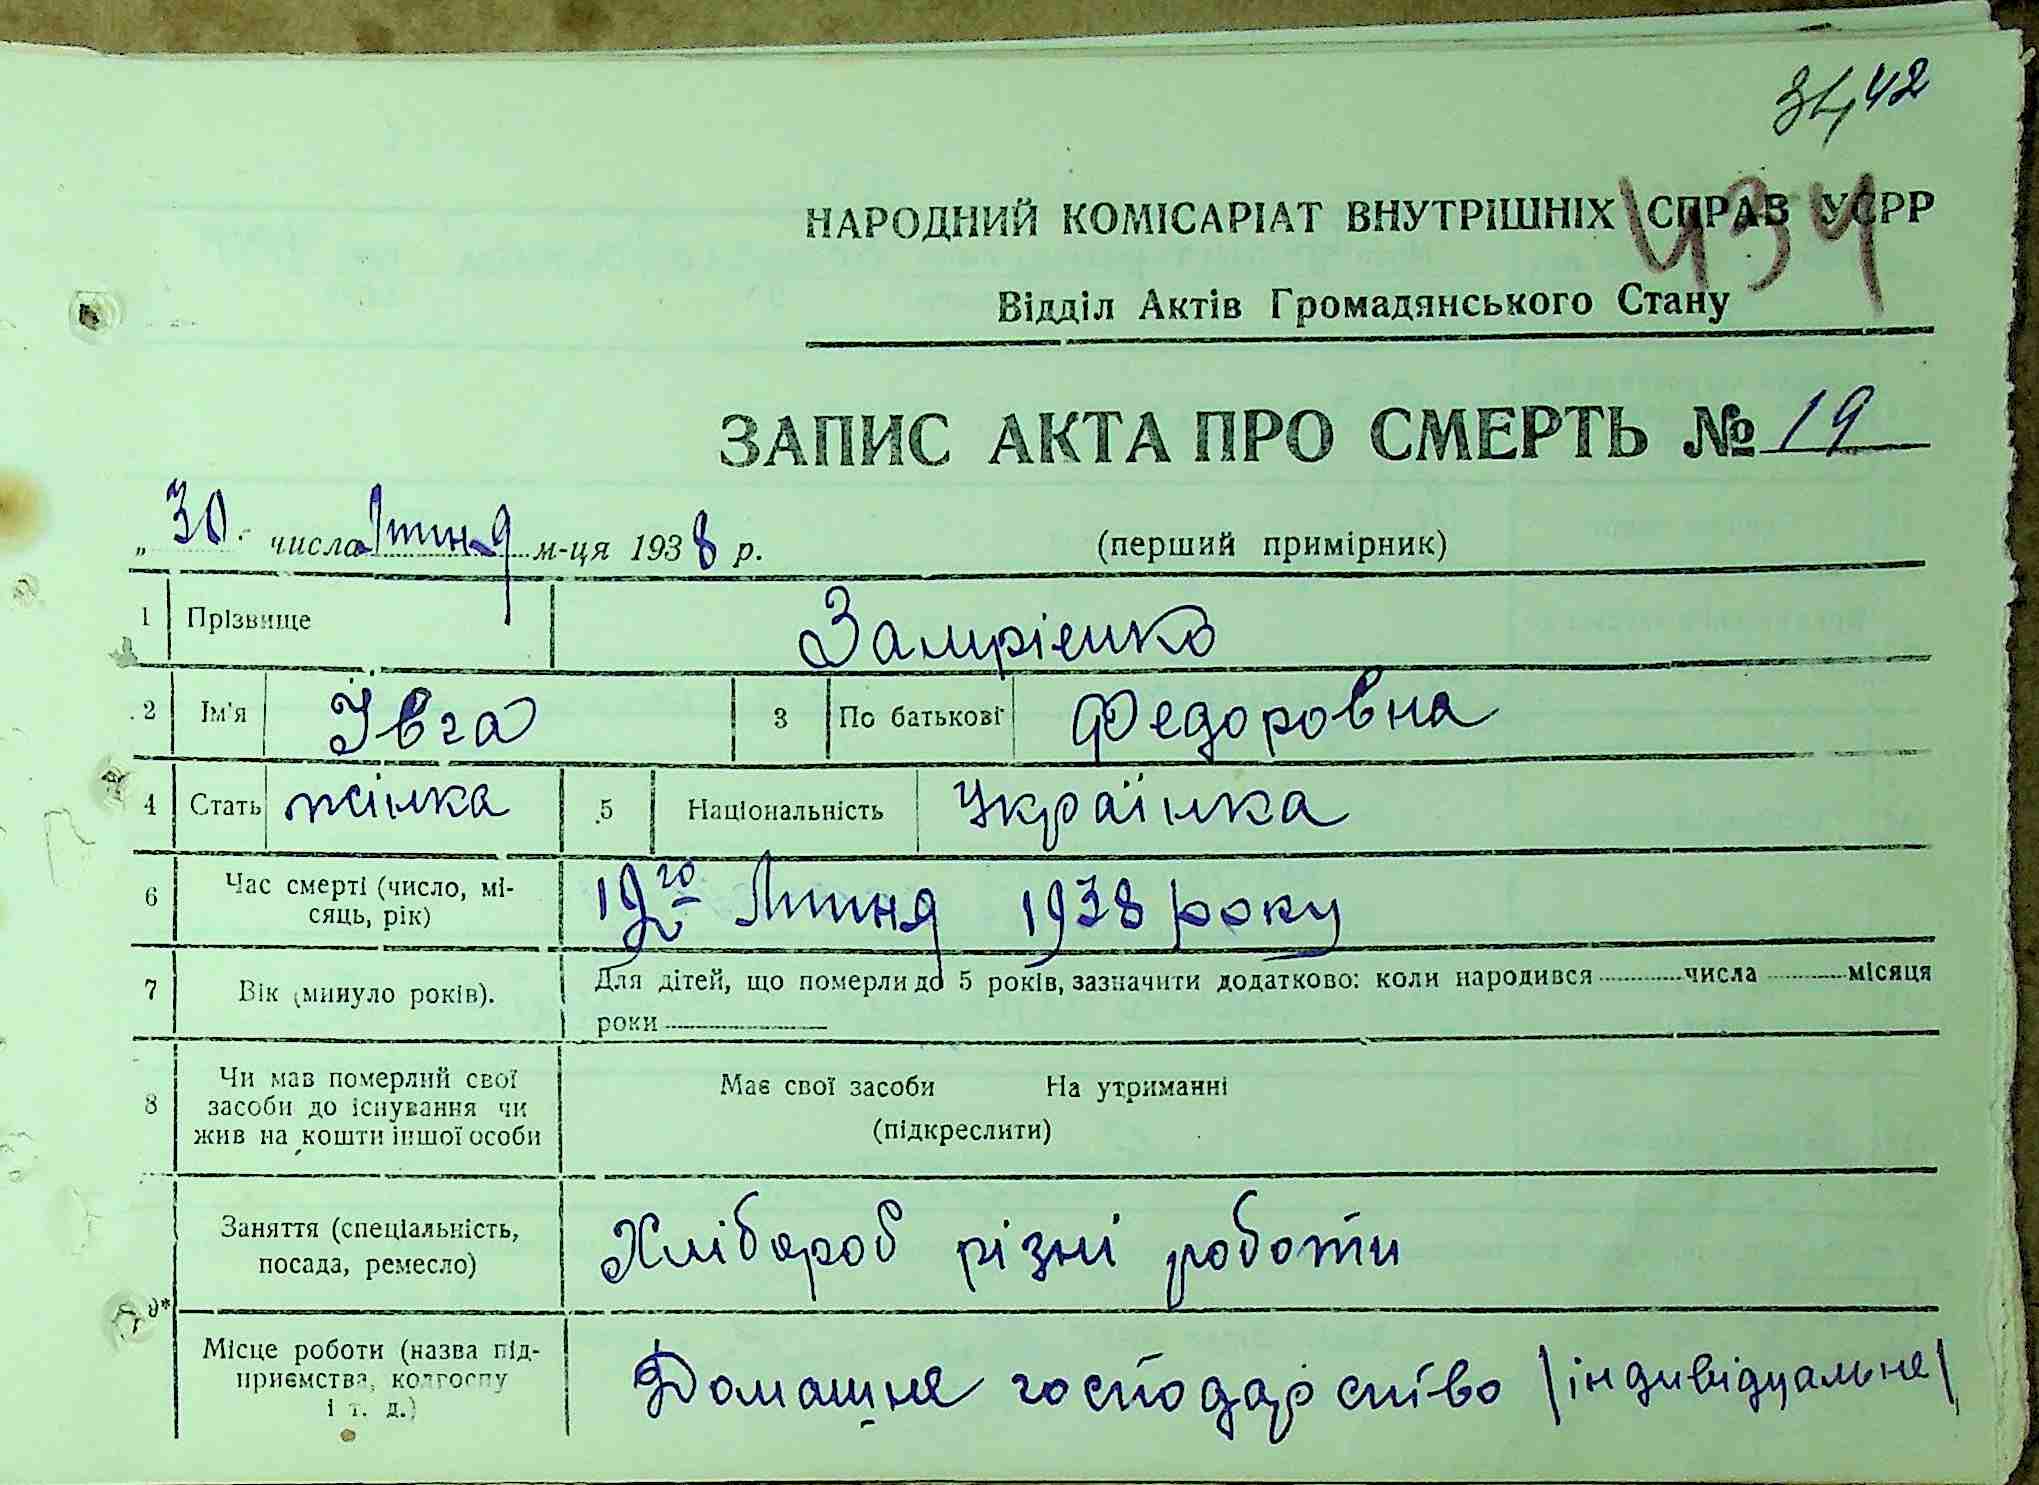 34 42
434
НАРОДНИЙ КОМІСАРІАТ ВНУТРІШНІХ СПРАВ УСРР
Відділ Актів Громадянського Стану
ЗАПИС АКТА ПРО СМЕРТЬ № 19
„ 30 числа Липня м-ця 1938 р. (перший примірник)
1 Прізвище Замрієнко
2 Ім'я Івга 3 По батькові Федоровна
4 Стать жінка 5 Національність Українка
6 Час смерті (число, мі-
сяць, рік) 19го Липня 1938 року
7 Вік (минуло років). Для дітей, що померли до 5 років, зазначити додатково: коли народився числа місяця
роки
8 Чи мав померлий свої
засоби до існування чи
жив на кошти іншої особи
Має свої засоби На утриманні
(підкреслити)
Заняття (спеціальність,
посада, ремесло) Хлібороб різні роботи
9*
Місце роботи (назва під-
приємства, колгоспу
і т. д.) Домашнє господарство /індивідуальне/